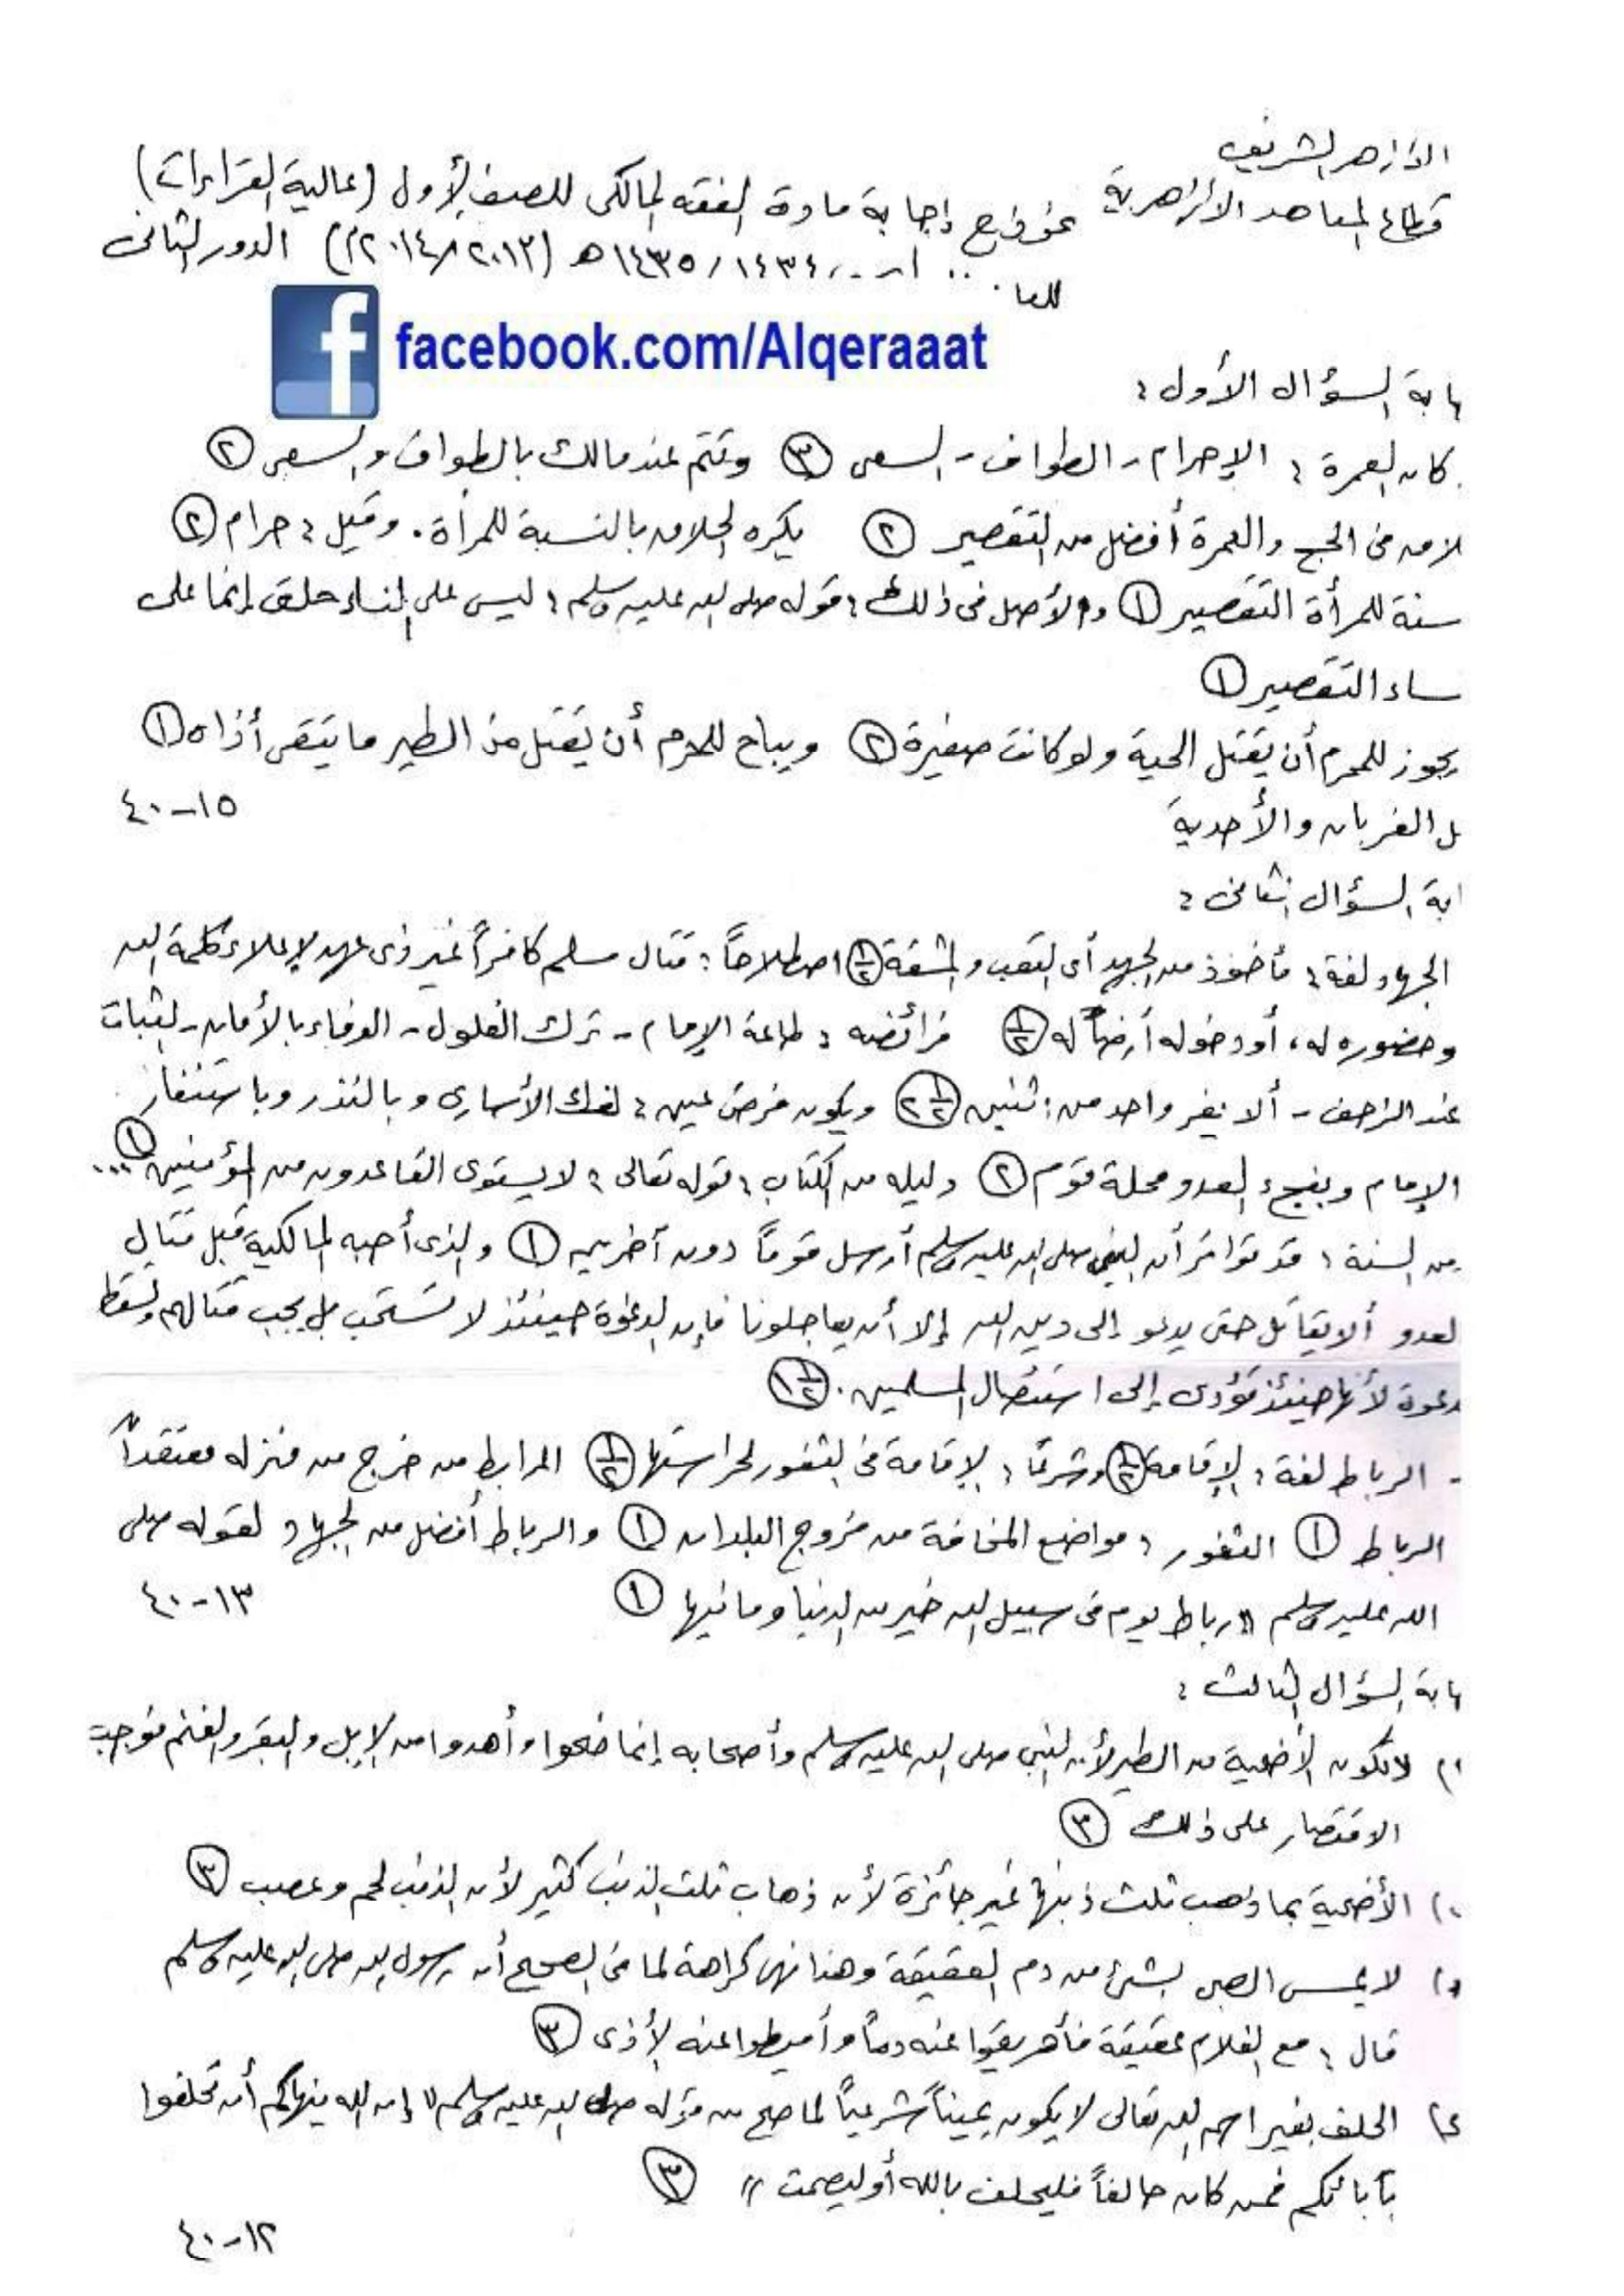 الأزهر الشريف
قطاع المعاهد الأزهرية نموذج إجابة مادة الفقه المالكى للصف الأول (عالية القراءات)
للعا ١٤٣٤/١٤٣٥هـ (٢٠١٣/٢٠١٤م) الدور الثانى
facebook.com/Alqeraaat
ابة السؤال الأول :
كان العمرة : الإحرام - الطواف - السعى (٣) وتتم عند مالك بالطواف والسعى (٢)
لاق فى الحج والعمرة أفضل من التقصير (٢) يكره الحلاق بالنسبة للمرأة . وقيل : حرام (٢)
سنة للمرأة التقصير (١) والأصل فى ذلك : قوله صلى الله عليه وسلم : ليس على النساء حلق إنما على
ساء التقصير (١)
يجوز للمحرم أن يقتل الحية ولو كانت صغيرة (٢) ويباح للمحرم أن يقتل من الطير ما يتقى أذاه (١)
ل الغربان والأحدية
١٥-٤٠
ابة السؤال الثانى :
الجهاد لغة : مأخوذ من الجهد أى التعب والمشقة (١/٢) اصطلاحاً : قتال مسلم كافراً غير ذى عهد لإعلاء كلمة الله
وحضوره له ، أو دخوله أرضاً له (١/٢) فرائضه : طاعة الإمام - ترك الغلول - الوفاء بالأمان - الثبات
عند الزحف - ألا يفر واحد من اثنين (٢ ١/٢) ويكون فرض عين : لفك الأسارى وبالنذر وباستنفار
الإمام وبفجء العدو محلة قوم (٢) دليله من الكتاب : قوله تعالى : لا يستوى القاعدون من المؤمنين ... (١)
من السنة : قد تواتر أن النبى صلى الله عليه وسلم أرسل قوماً دون آخرين (١) والذى أحبه المالكية قبل قتال
لعدو ألا يقاتل حتى يدعو إلى دين الله إلا أن يعاجلونا فإن الدعوة حينئذ لا تستحب بل يجب قتالهم وتسقط
دعوة لأنها حينئذ تؤدى إلى استئصال المسلمين . (١ ١/٢)
- الرباط لغة : الإقامة (١/٢) وشرعاً : الإقامة فى الثغور لحراستها (١/٢) المرابط من خرج من منزله معتقداً
الرباط (١) الثغور : مواضع المخافة من فروج البلدان (١) والرباط أفضل من الجهاد لقوله صلى
الله عليه وسلم "رباط يوم فى سبيل الله خير من الدنيا وما فيها (١)
١٣-٤٠
ابة السؤال الثالث :
أ) لا تكون الأضحية من الطير لأن النبى صلى الله عليه وسلم وأصحابه إنما ضحوا وأهدوا من الإبل والبقر والغنم فوجب
الاقتصار على ذلك (٣)
ب) الأضحية بما ذهب ثلث ذنبها غير جائزة لأن ذهاب ثلث الذنب كثير لأن الذنب لحم وعصب (٣)
لا يمس الصبى بشئ من دم العقيقة وهذا نهى كراهة لما فى الصحيح أن رسول الله صلى الله عليه وسلم
قال : مع الغلام عقيقة فأهريقوا عنه دماً وأميطوا عنه الأذى (٣)
الحلف بغير اسم الله تعالى لا يكون يميناً شرعياً لما صح من قوله صلى الله عليه وسلم "إن الله ينهاكم أن تحلفوا
بآبائكم فمن كان حالفاً فليحلف بالله أو ليصمت" (٣)
١٢-٤٠